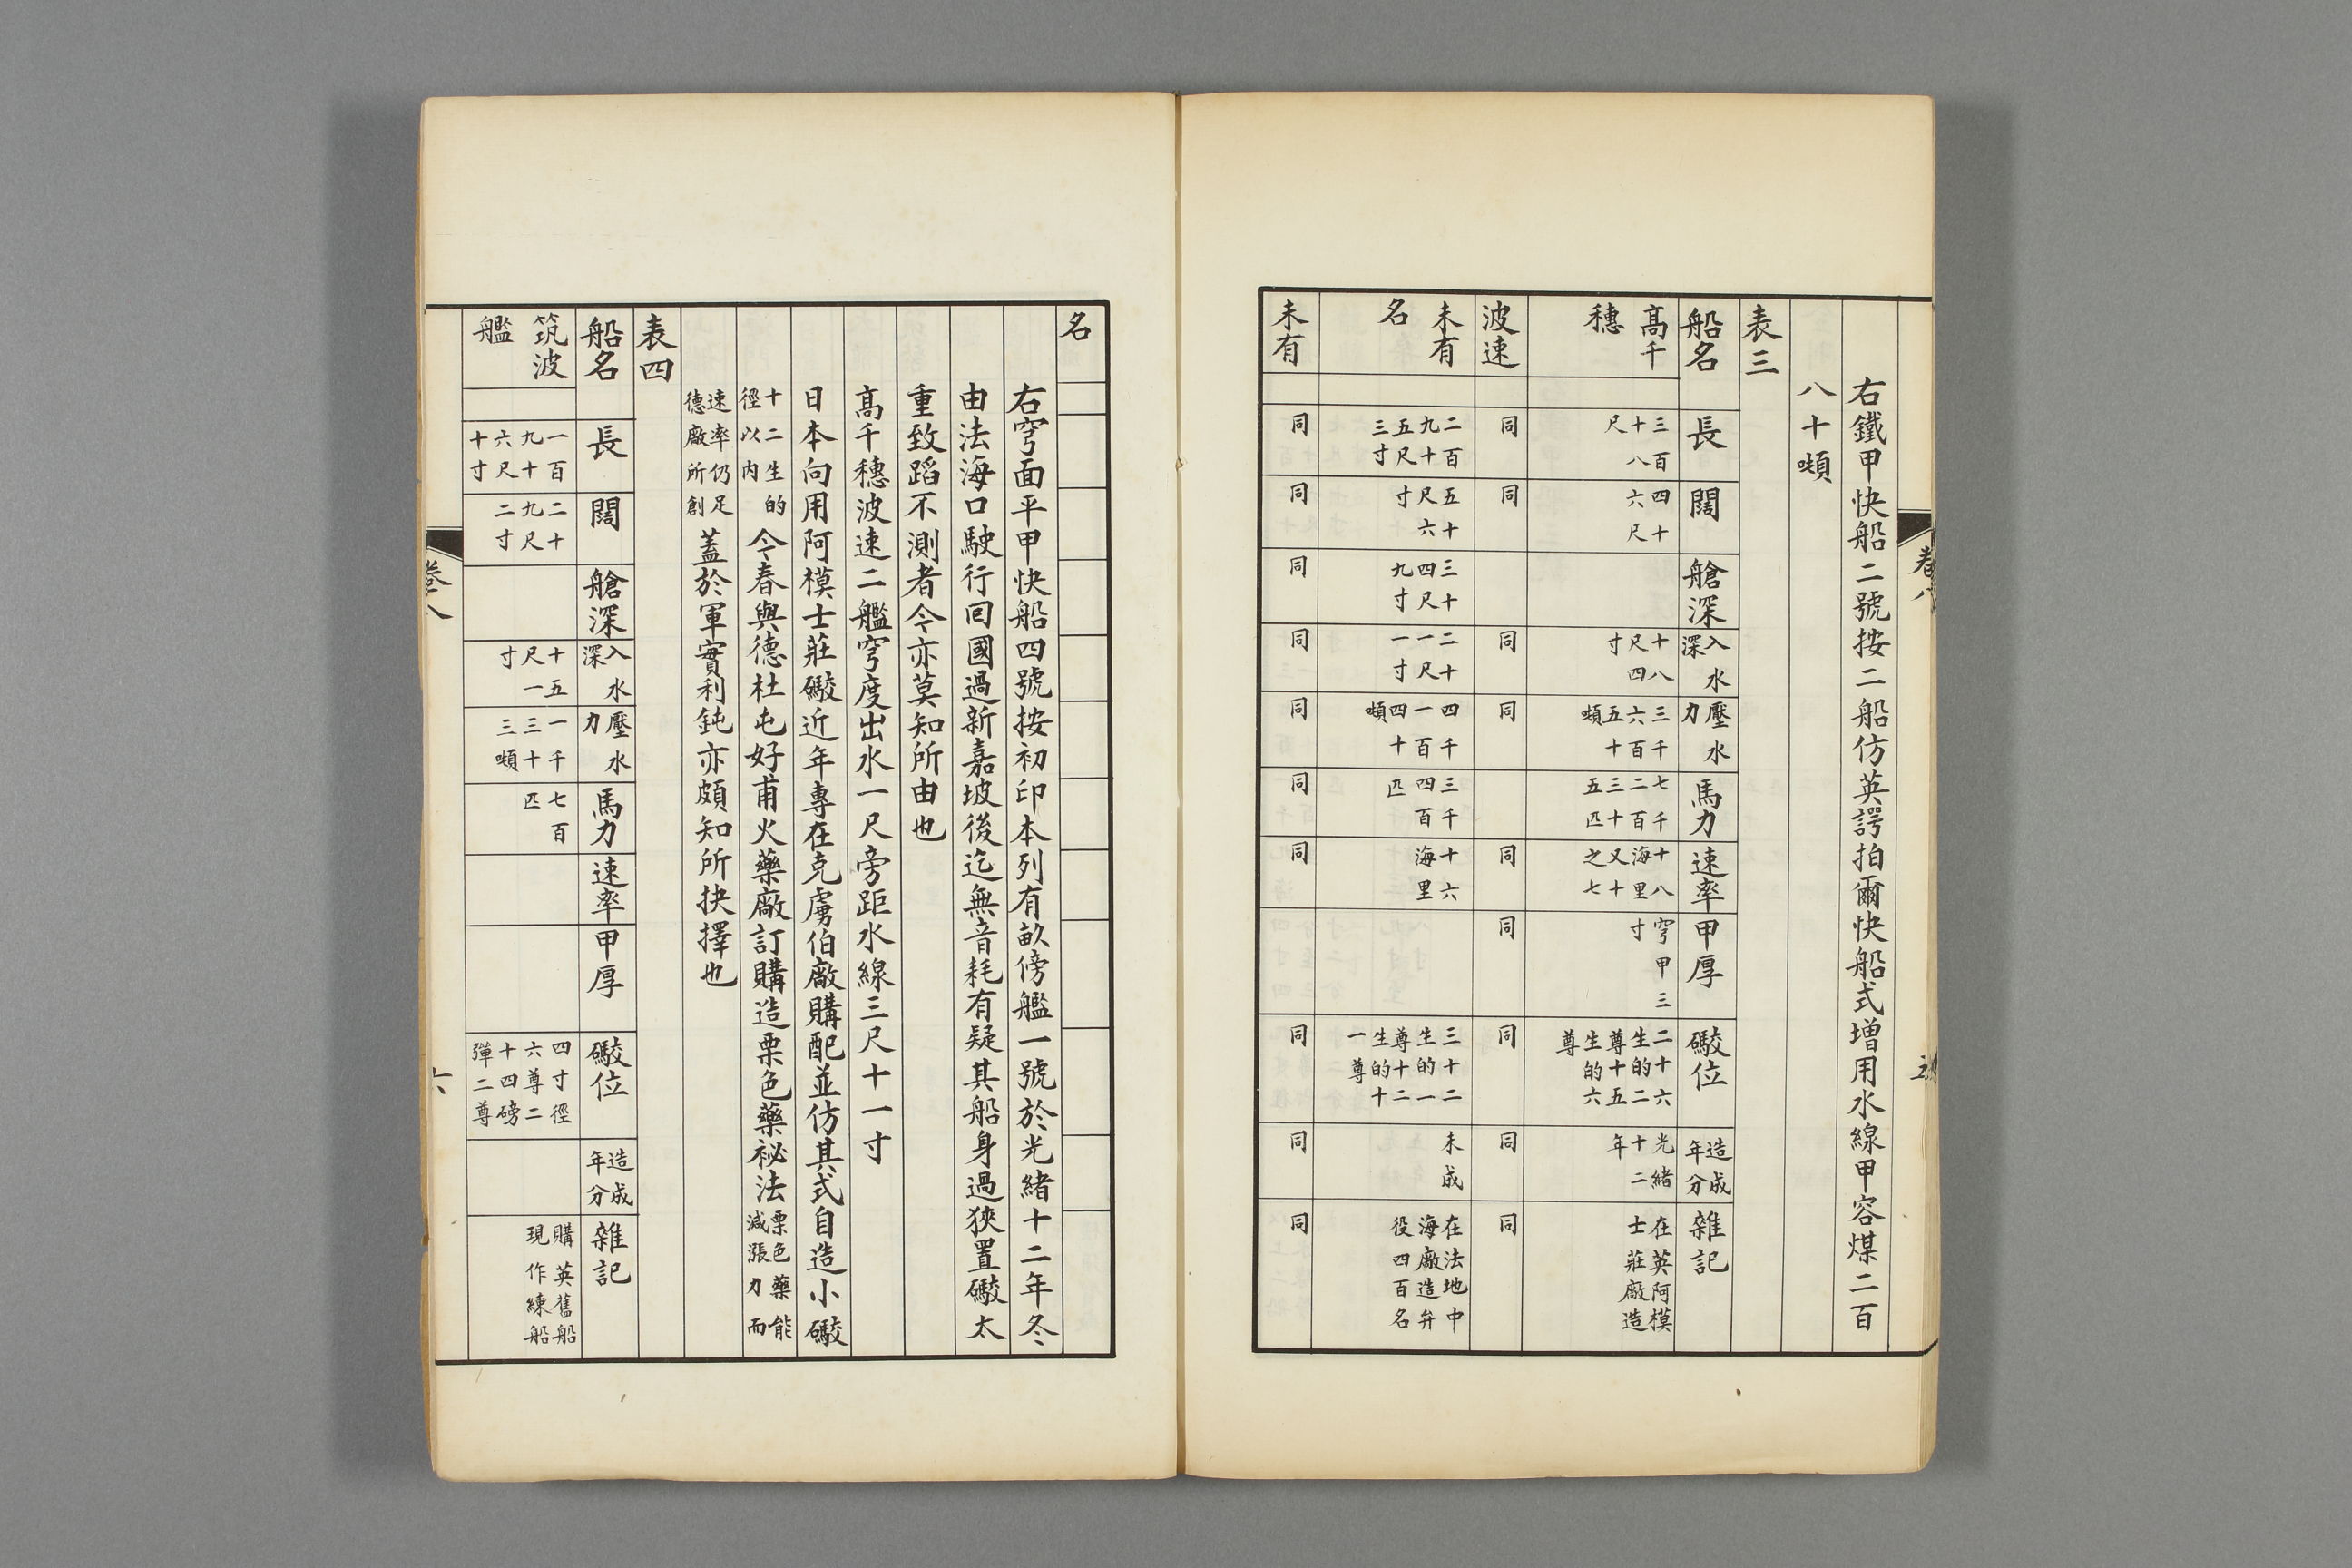 右鐵甲快船二號按二船仿英諤拍爾快船式增用水線甲容煤二百
八十噸
表三
船名 長 闊 艙深 入水深 壓水力 馬力 速率 甲厚 礮位 造成年分 雜記
高千穗 三百十八尺 四十六尺 十八尺四寸 三千六百五十噸 七千二百三十五匹 十八海里又十之七 穹甲三寸 二十六生的二尊十五生的六尊 光緒十二年 在英阿模士莊廠造
波速 同 同 同 同 同 同 同 同 同
未有名 二百九十五尺三寸 五十尺六寸 三十四尺九寸 二十一尺一寸 四千一百四十噸 三千四百匹 十六海里 三十二生的一尊十二生的十一尊 未成 在法地中海廠造弁役四百名
未有 同 同 同 同 同 同 同 同 同 同
卷八
名
右穹面平甲快船四號按初印本列有畝傍艦一號於光緒十二年冬
由法海口駛行回國過新嘉坡後迄無音耗有疑其船身過狹置礮太
重致蹈不測者今亦莫知所由也
高千穗波速二艦穹度出水一尺旁距水線三尺十一寸
日本向用阿模士莊礮近年專在克虜伯廠購配並仿其式自造小礮
十二生的徑以內 今春與德杜屯好甫火藥廠訂購造栗色藥祕法 栗色藥能減漲力而
速率仍足德廠所創 蓋於軍實利鈍亦頗知所抉擇也
表四
船名 長 闊 艙深 入水深 壓水力 馬力 速率 甲厚 礮位 造成年分 雜記
筑波艦 一百九十六尺十寸 二十九尺二寸 十五尺一寸 一千三十三噸 七百匹 四寸徑六尊二十四磅彈二尊 購英舊船現作練船
卷八
六